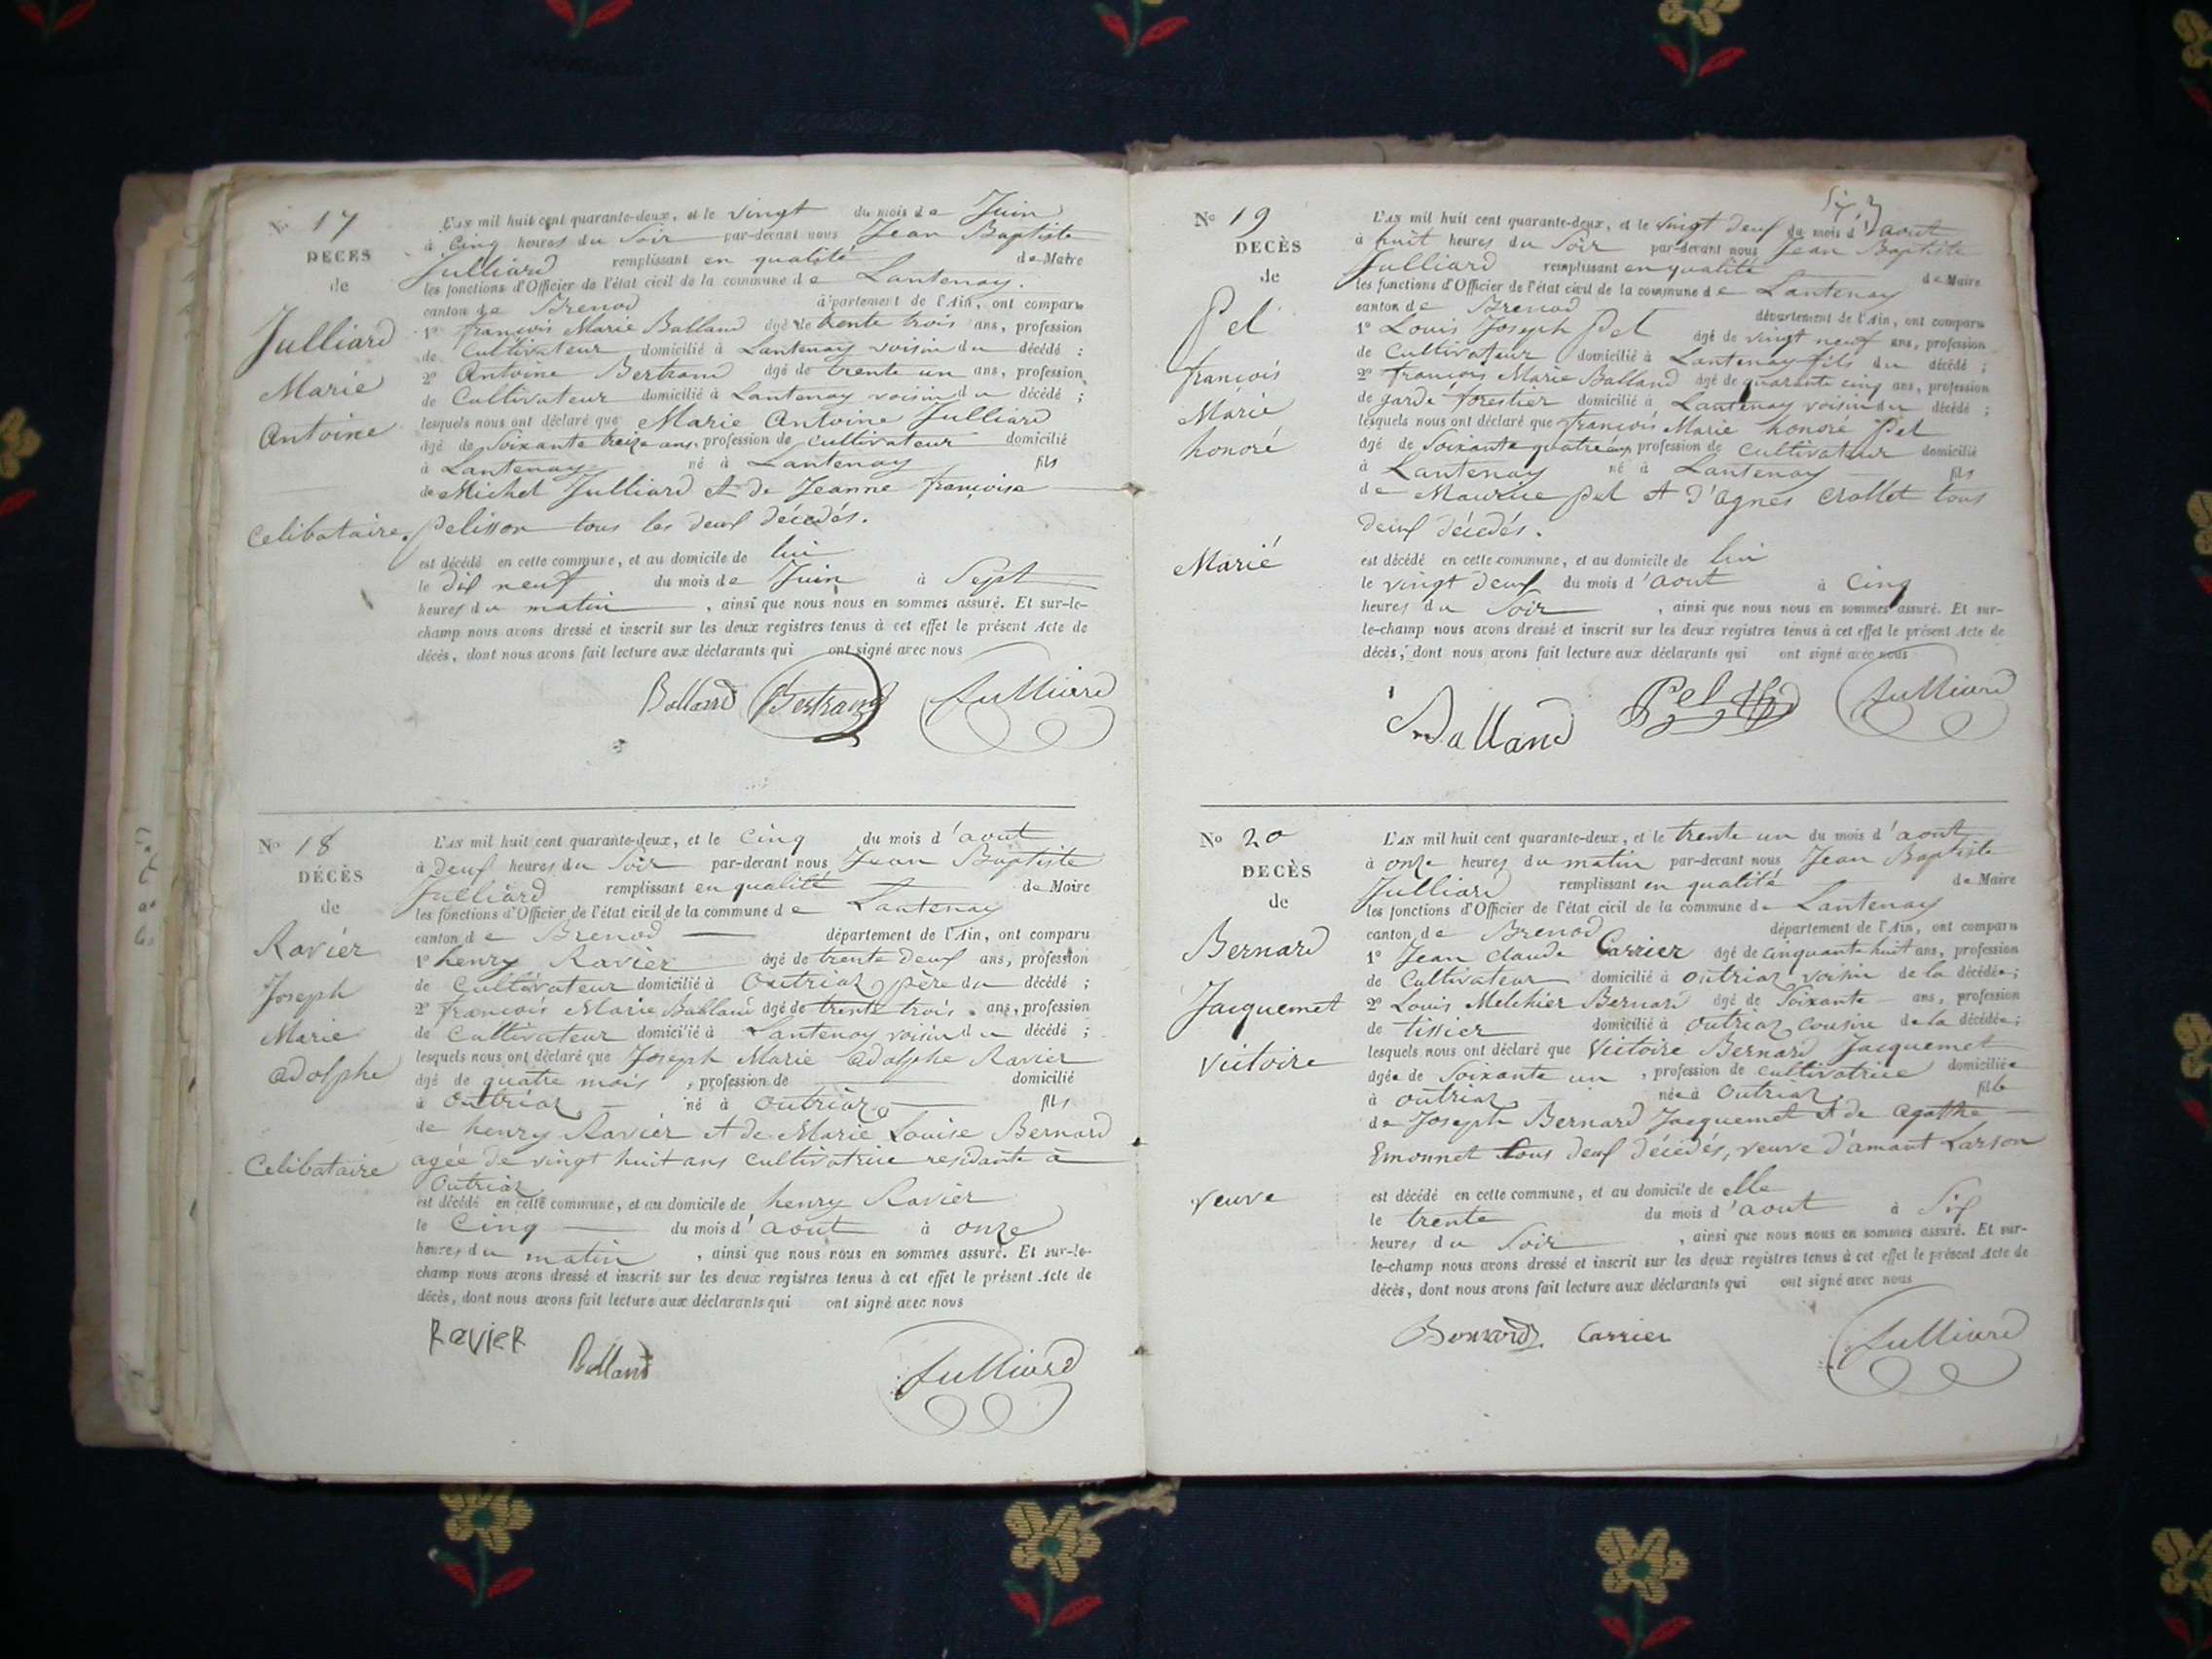 N° 17
DÉCÈS
de
Julliard
Marie
Antoine
Celibataire.
L'AN mil huit cent quarante-deux, et le vingt du mois de Juin
à Cinq heures du Soir par-devant nous Jean Baptiste
Julliard remplissant en qualité de Maire
les fonctions d'Officier de l'état civil de la commune de Lantenay.
canton de Brenod département de l'Ain, ont comparu
1° françois Marie Balland âgé de trente trois ans, profession
de Cultivateur domicilié à Lantenay voisin du décédé ;
2° Antoine Bertrand âgé de trente un ans, profession
de Cultivateur domicilié à Lantenay voisin du décédé ;
lesquels nous ont déclaré que Marie Antoine Julliard
âgé de Soixante treize ans, profession de cultivateur domicilié
à Lantenay né à Lantenay fils
de Michel Julliard et de Jeanne françoise
pelisson tous les deux décedés.
est décédé en cette commune, et au domicile de lui
le dix neuf du mois de Juin à Sept
heures du matin , ainsi que nous nous en sommes assuré. Et sur-le-
champ nous avons dressé et inscrit sur les deux registres tenus à cet effet le présent Acte de
décès, dont nous avons fait lecture aux déclarants qui ont signé avec nous
Balland Bertrand Julliard
N° 18
DÉCÈS
de
Ravier
Joseph
Marie
adolphe
Celibataire
L'AN mil huit cent quarante-deux, et le Cinq du mois d'aout
à deux heures du Soir par-devant nous Jean Baptiste
Julliard remplissant en qualité de Maire
les fonctions d'Officier de l'état civil de la commune de Lantenay
canton de Brenod département de l'Ain, ont comparu
1° henry Ravier âgé de trente deux ans, profession
de Cultivateur domicilié à Outriaz père du décédé ;
2° françois Marie Balland âgé de trente trois ans, profession
de Cultivateur domicilié à Lantenay voisin du décédé ;
lesquels nous ont déclaré que Joseph Marie adolphe Ravier
âgé de quatre mois , profession de domicilié
à Outriaz né à Outriaz fils
de henry Ravier et de Marie Louise Bernard
agée de vingt huit ans cultivatrice residante à
Outriaz
est décédé en cette commune, et au domicile de henry Ravier
le Cinq du mois d'aout à onze
heures du matin , ainsi que nous nous en sommes assuré. Et sur-le-
champ nous avons dressé et inscrit sur les deux registres tenus à cet effet le présent Acte de
décès, dont nous avons fait lecture aux déclarants qui ont signé avec nous
RavieR Balland Julliard
N° 19
DECÈS
de
Pel
françois
Marie
honoré
Marié
L'AN mil huit cent quarante-deux, et le vingt deux du mois d'aout
à huit heures du Soir par-devant nous Jean Baptiste
Julliard remplissant en qualité de Maire
les fonctions d'Officier de l'état civil de la commune de Lantenay
canton de Brenod département de l'Ain, ont comparu
1° Louis Joseph Pel âgé de vingt neuf ans, profession
de Cultivateur domicilié à Lantenay fils du décédé ;
2° françois Marie Balland âgé de quarante cinq ans, profession
de garde forestier domicilié à Lantenay voisin du décédé ;
lesquels nous ont déclaré que françois Marie honoré Pel
âgé de Soixante quatre ans, profession de Cultivateur domicilié
à Lantenay né à Lantenay fils
de Maurice pel et d'agnès Crollet tous
deux décedés.
est décédé en cette commune, et au domicile de lui
le vingt deux du mois d'aout à Cinq
heures du Soir , ainsi que nous nous en sommes assuré. Et sur-
le-champ nous avons dressé et inscrit sur les deux registres tenus à cet effet le présent Acte de
décès, dont nous avons fait lecture aux déclarants qui ont signé avec nous
Balland Pel Julliard
N° 20
DECÈS
de
Bernard
Jacquemet
Victoire
veuve
L'AN mil huit cent quarante-deux, et le trente un du mois d'aout
à onze heures du matin par-devant nous Jean Baptiste
Julliard remplissant en qualité de Maire
les fonctions d'Officier de l'état civil de la commune de Lantenay
canton de Brenod département de l'Ain, ont comparu
1° Jean claude Carrier âgé de cinquante huit ans, profession
de Cultivateur domicilié à outriaz voisin de la décédée ;
2° Louis Melchier Bernard âgé de Soixante ans, profession
de tissier domicilié à outriaz cousin de la décédée ;
lesquels nous ont déclaré que Victoire Bernard Jacquemet
âgée de Soixante un , profession de cultivatrice domiciliée
à outriaz née à Outriaz fille
de Joseph Bernard Jacquemet et de agathe
Emonnet tous deux décedés, veuve d'amant Larson
est décédé en cette commune, et au domicile de elle
le trente du mois d'aout à Six
heures du Soir , ainsi que nous nous en sommes assuré. Et sur-
le-champ nous avons dressé et inscrit sur les deux registres tenus à cet effet le présent Acte de
décès, dont nous avons fait lecture aux déclarants qui ont signé avec nous
Bernard Carrier Julliard